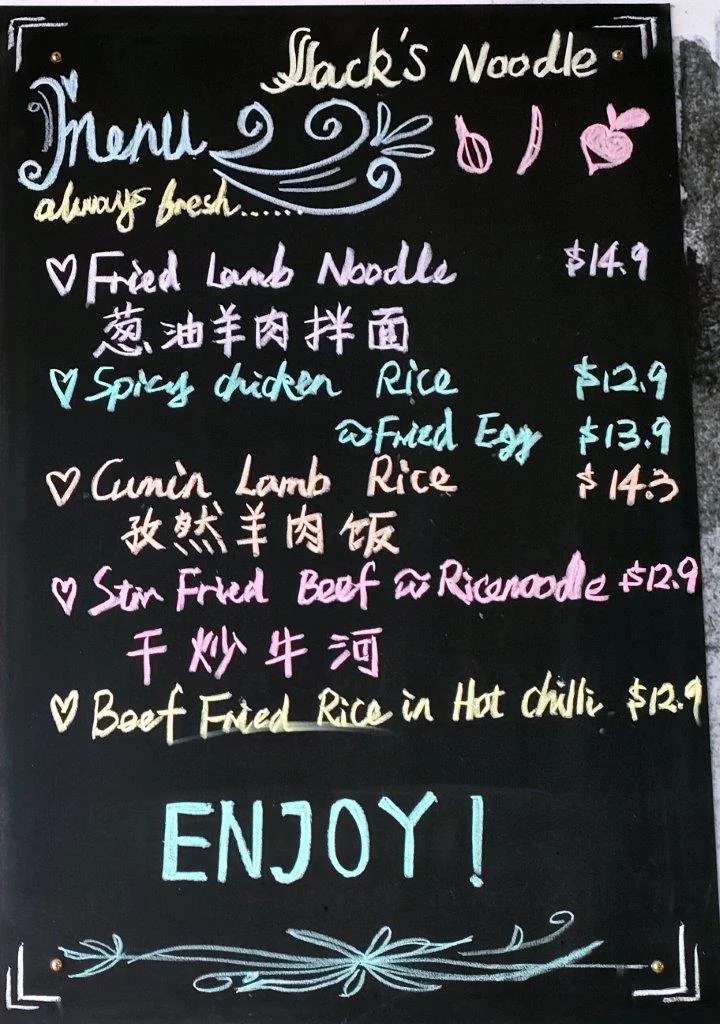 Jack's Noodle
Menu
always fresh......
♡ Fried Lamb Noodle $14.9
葱油羊肉拌面
♡ Spicy chicken Rice $12.9
w Fried Egg $13.9
♡ Cumin Lamb Rice $14.3
孜然羊肉饭
♡ Stir Fried Beef w Ricenoodle $12.9
干炒牛河
♡ Beef Fried Rice in Hot chilli $12.9
ENJOY!